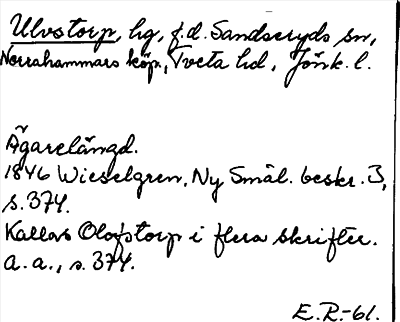 Ulvstorp, hg, f.d. Sandseryds sn,
Norrahammars köp, Tveta hd, Jönk. l.
Ägarelängd.
1846 Wieselgren, Ny Smål. beskr. 3,
s. 374.
Kallas Olofstorp i flera skrifter.
a. a., s. 374.
E. R.-61.